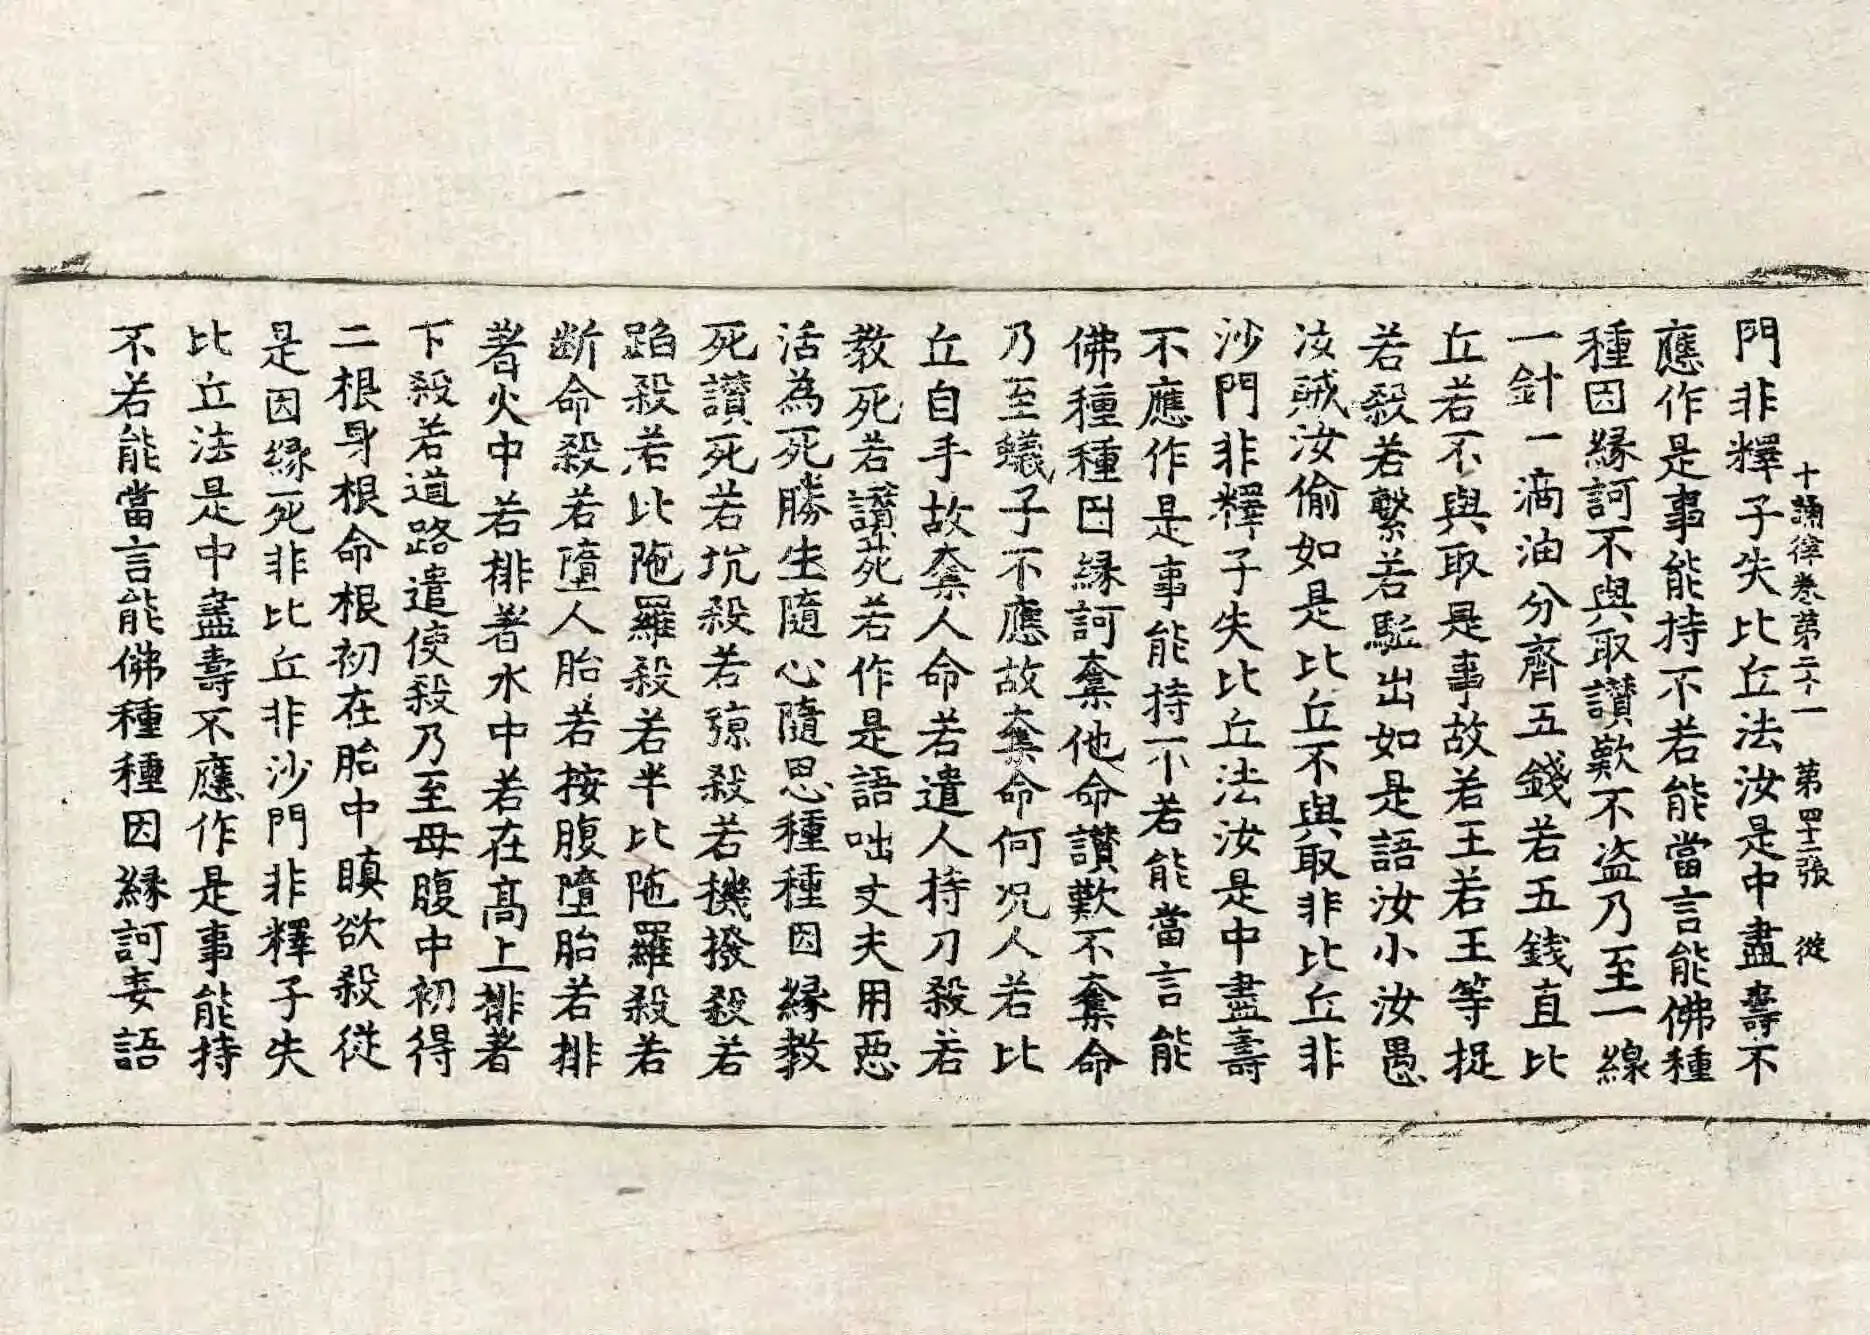 十誦律卷第二十一 第四十二張 從
門非釋子失比丘法汝是中盡壽不
應作是事能持不若能當言能佛種
種因緣訶不與取讃歎不盜乃至一線
一針一滴油分齊五錢若五錢直比
丘若不與取是事故若王若王等捉
若殺若繫若駈出如是語汝小汝愚
汝賊汝偷如是比丘不與取非比丘非
沙門非釋子失比丘法汝是中盡壽
不應作是事能持不若能當言能
佛種種因緣訶奪他命讃歎不奪命
乃至蟻子不應故奪命何況人若比
丘自手故奪人命若遣人持刀殺若
教死若讃死若作是語咄丈夫用惡
活為死勝生隨心隨思種種因緣教
死讃死若坑殺若弶殺若機撥殺若
蹈殺若比陁羅殺若半比陁羅殺若
断命殺若墮人胎若按腹墮胎若排
著火中若排著水中若在高上排著
下殺若道路遣使殺乃至母腹中初得
二根身根命根初在胎中瞋欲殺從
是因緣死非比丘非沙門非釋子失
比丘法是中盡壽不應作是事能持
不若能當言能佛種種因緣訶妄語